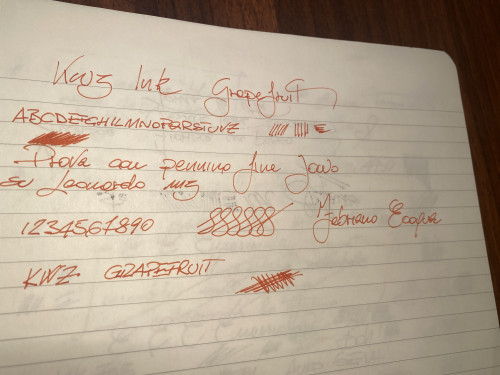 Kwz Ink Grapefruit
ABCDEFGHILMNOPQRSTUVZ
Prova con pennino fine Jowo
su Leonardo mz
1234567890
Fabriano Ecoqua
KWZ GRAPEFRUIT